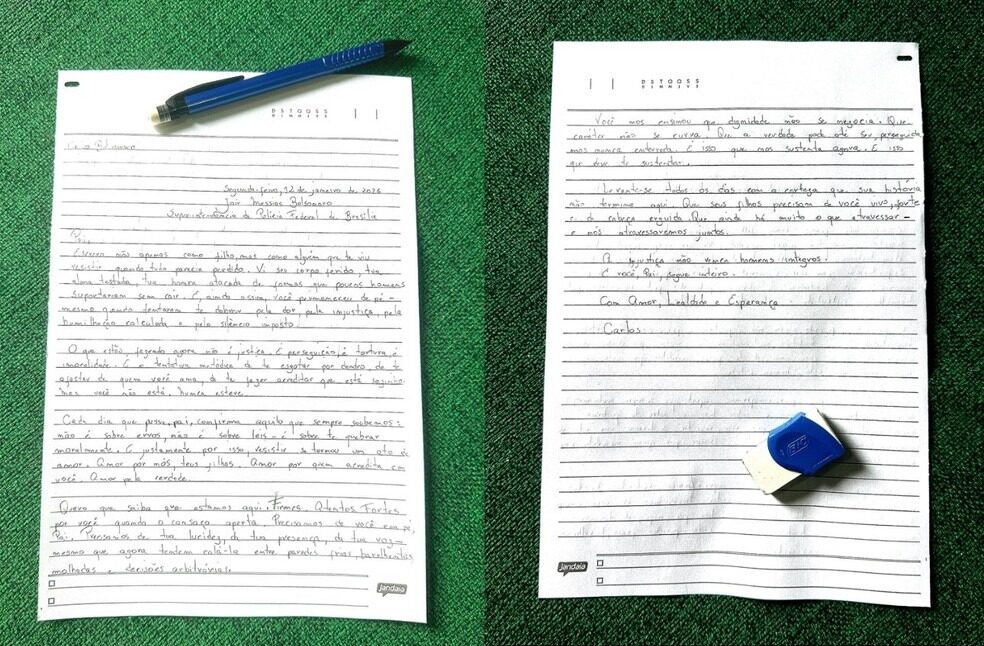 D S T Q Q S S
D I M M J V S
Segunda-feira, 12 de janeiro de 2026
Jair Messias Bolsonaro
Superintendência da Polícia Federal de Brasília
Pai,
Escrevo não apenas como filho, mas como alguém que te viu
resistir quando tudo parecia perdido. Vi seu corpo ferido, tua
alma testada, tua honra atacada de formas que poucos homens
suportariam sem cair. E, ainda assim, você permaneceu de pé -
mesmo quando tentaram te dobrar pela dor, pela injustiça, pela
humilhação calculada e pelo silêncio imposto.
O que estão fazendo agora não é justiça. É perseguição, é tortura, é
imoralidade. É a tentativa metódica de te esgotar por dentro, de te
afastar de quem você ama, de te fazer acreditar que está sozinho.
Mas você não está. Nunca esteve.
Cada dia que passa, pai, confirma aquilo que sempre soubemos:
não é sobre erros, não é sobre leis - é sobre te quebrar
moralmente. E justamente por isso, resistir se tornou um ato de
amor. Amor por nós, teus filhos. Amor por quem acredita em
você. Amor pela verdade.
Quero que saiba que estamos aqui. Firmes. Atentos. Fortes
por você quando o cansaço aperta. Precisamos de você em pé,
Pai. Precisamos de tua lucidez, da tua presença, da tua voz -
mesmo que agora tentem calá-la entre paredes frias, barulhentas,
molhadas e decisões arbitrárias.
Jandaia
D S T Q Q S S
D I M M J V S
Você nos ensinou que dignidade não se negocia. Que
caráter não se curva. Que a verdade pode até ser perseguida
mas nunca enterrada. É isso que nos sustenta agora. É isso
que deve te sustentar.
Levante-se todos os dias com a certeza que sua história
não termina aqui. Que seus filhos precisam de você vivo, forte
e de cabeça erguida. Que ainda há muito o que atravessar -
e nós atravessaremos juntos.
A injustiça não vence homens íntegros.
E você, Pai, segue inteiro.
Com Amor, Lealdade e Esperança
Carlos
BIC
Jandaia